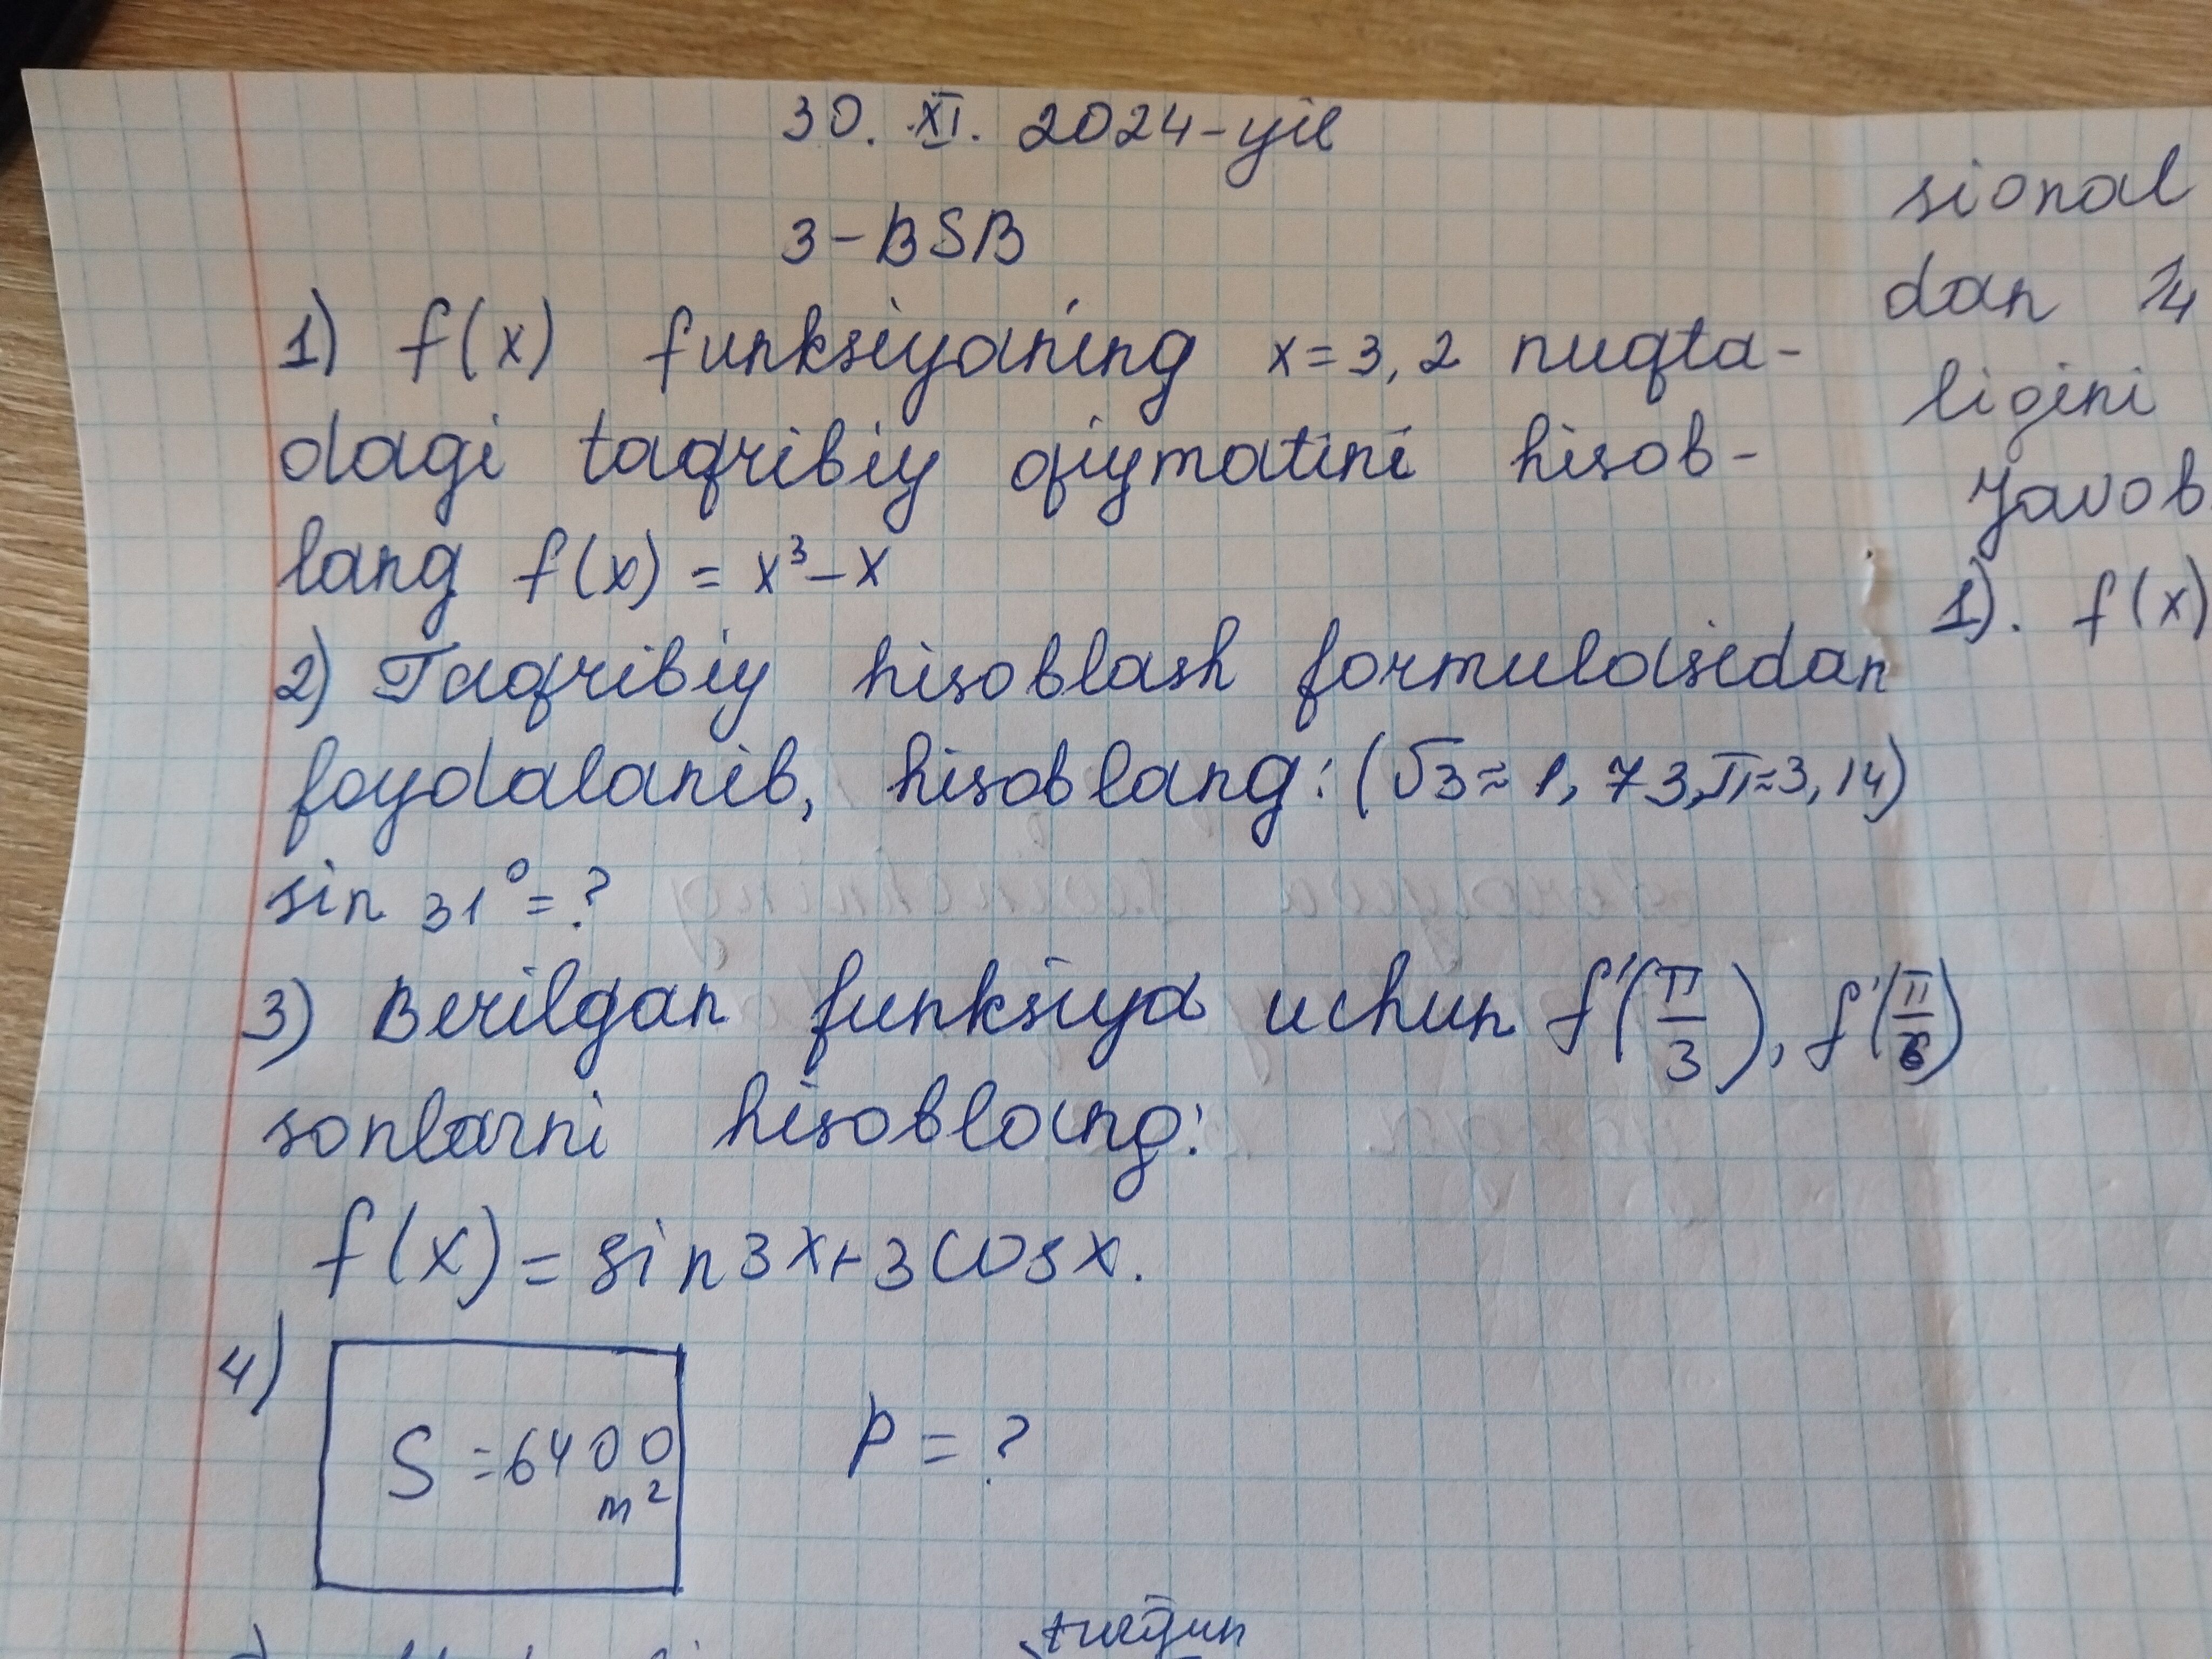 30. XI. 2024-yil
3-BSB
1) f(x) funksiyaning x=3,2 nuqta-
dagi taqribiy qiymatini hisob-
lang f(x) = x³ - x
2) Taqribiy hisoblash formulasidan
foydalanib, hisoblang: (√3≈1,73, π≈3,14)
sin 31° = ?
3) Berilgan funksiya uchun f'(π/3), f'(π/6)
sonlarni hisoblang:
f(x) = sin3x+3cosx.
4) S=6400 m² p=?
sional
dan
ligini
Javob
1). f(x)